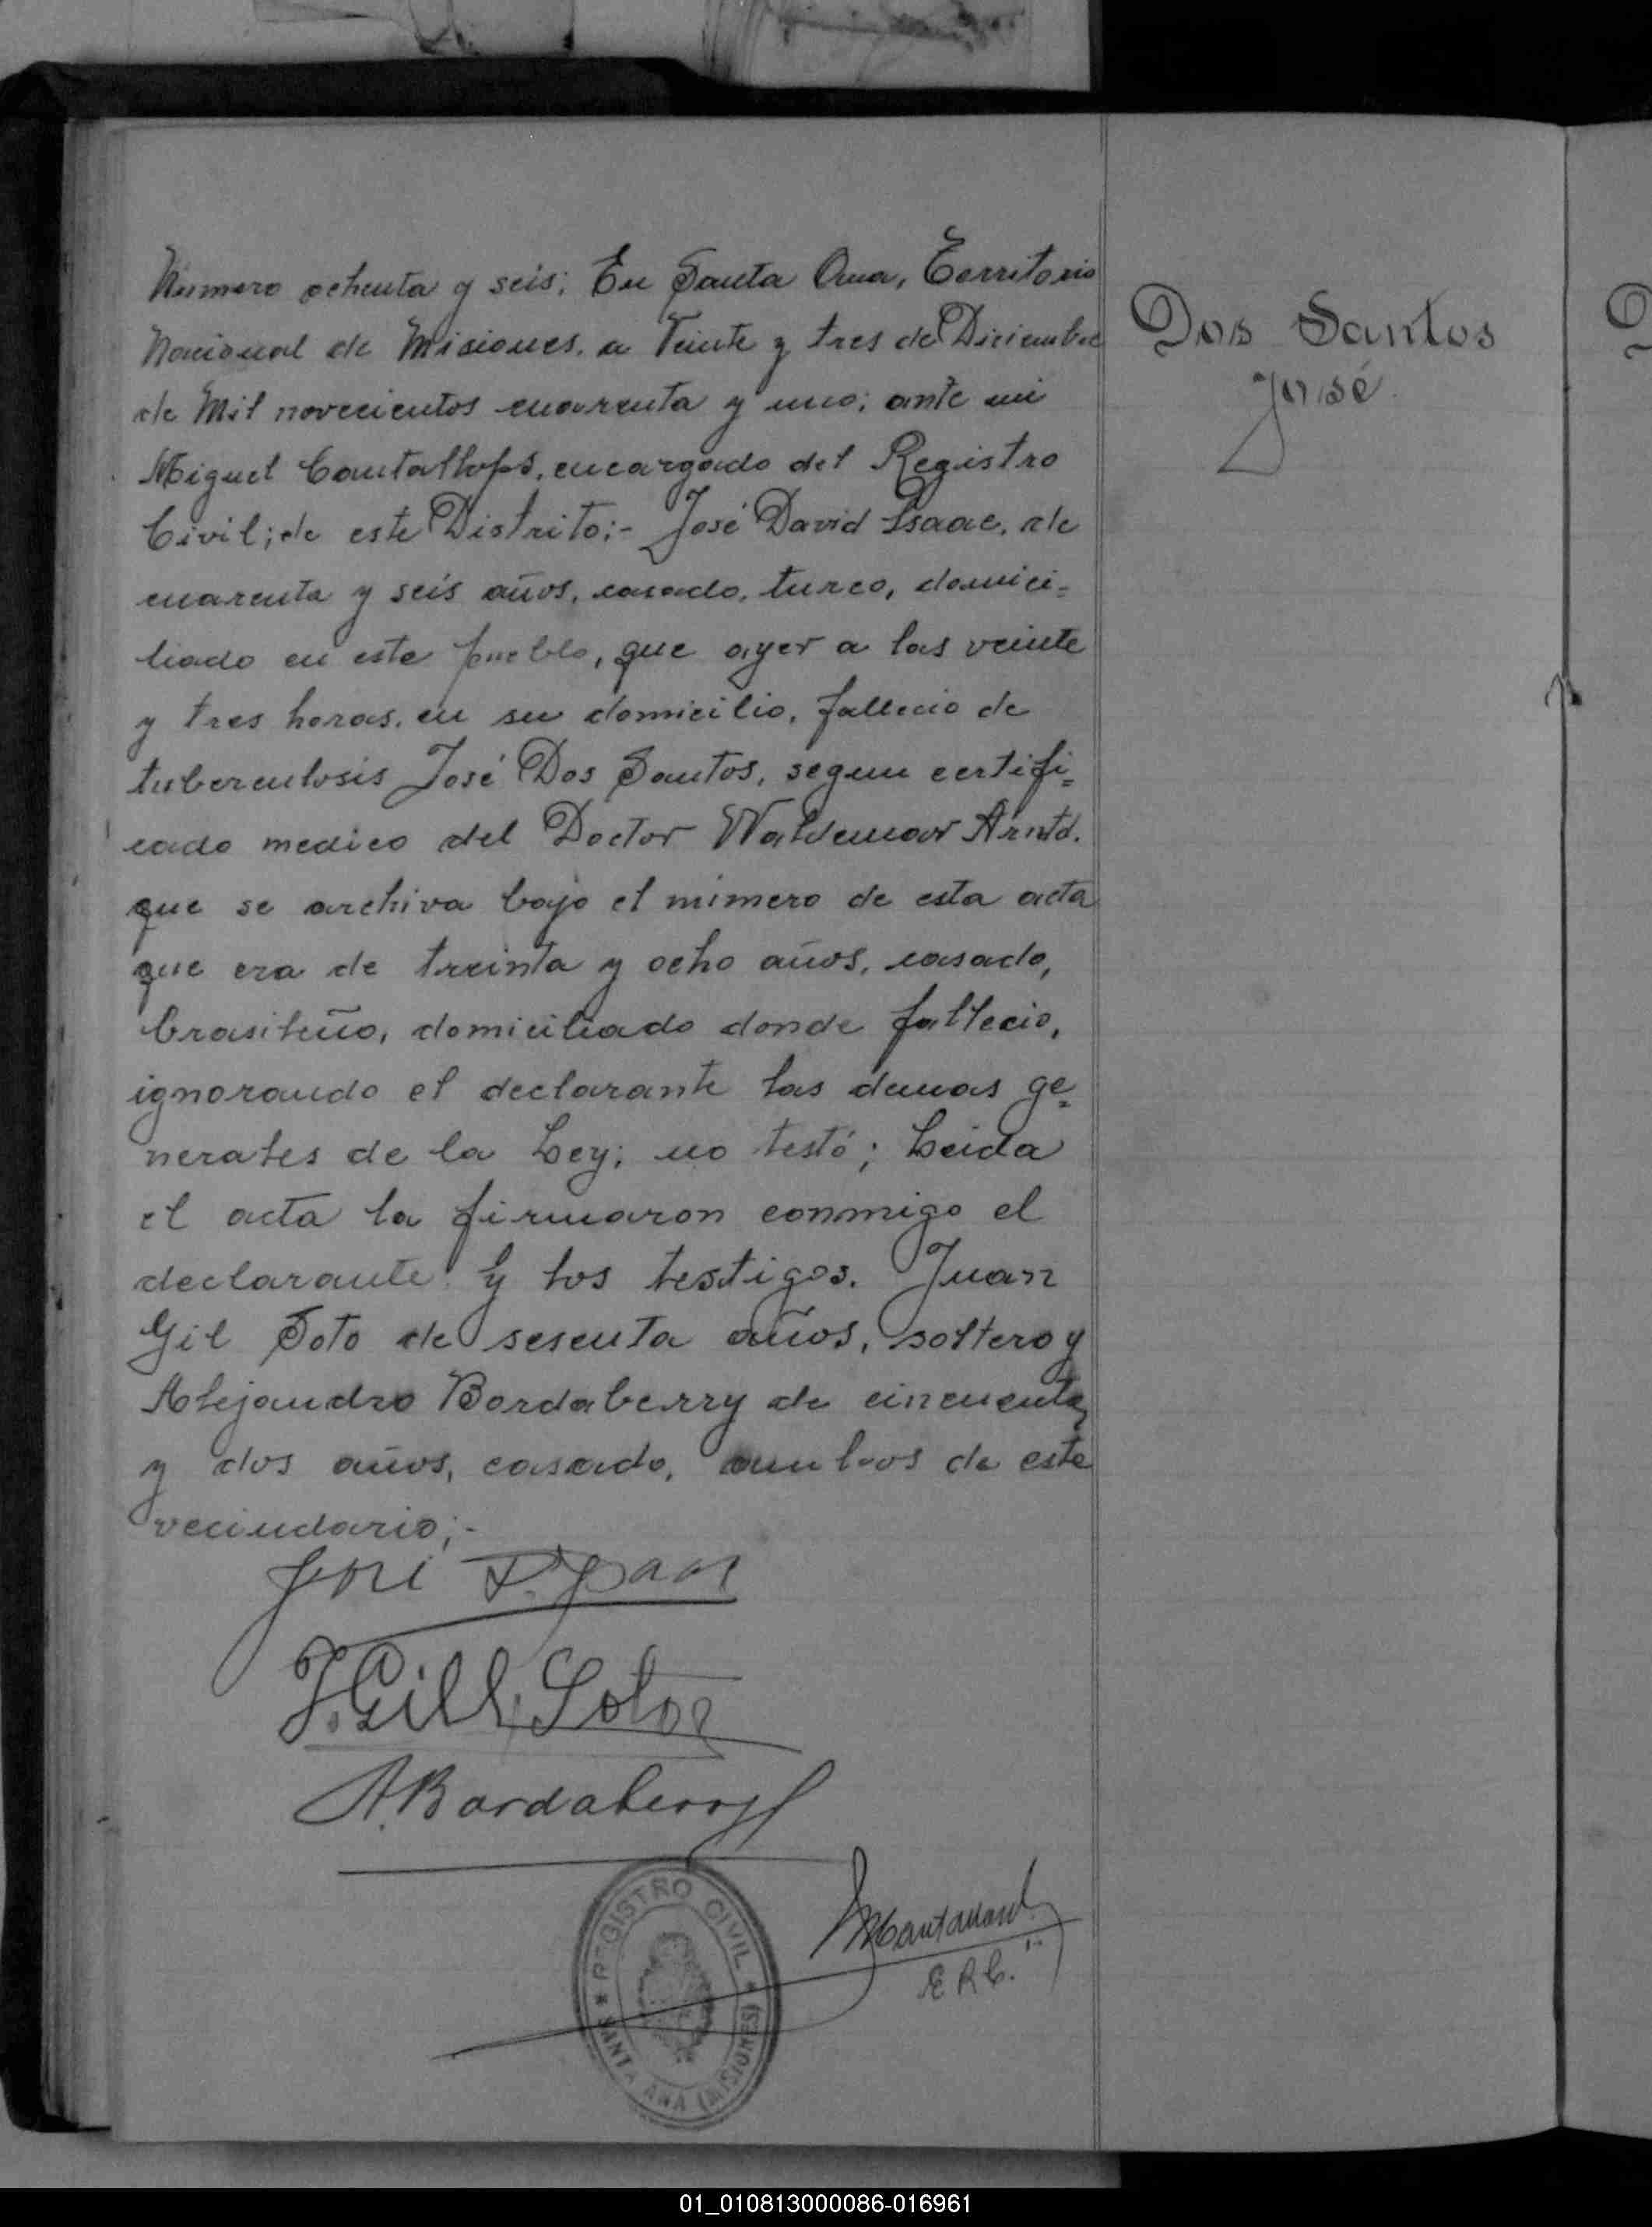 Numero ochenta y seis; En Santa Ana, Territorio
Nacional de Misiones, a Veinte y tres de Diciembre
de Mil novecientos cuarenta y uno; ante mi
Miguel Cantallops, encargado del Registro
Civil; de este Distrito:- José David Isaac, de
cuarenta y seis años, casado, turco, domici=
liado en este pueblo, que ayer a las veinte
y tres horas, en su domicilio, fallecio de
tuberculosis José Dos Santos, segun certifi=
cado medico del Doctor Waldemar Arntd.
que se archiva bajo el número de esta acta
que era de treinta y ocho años, casado,
brasileño, domiciliado donde fallecio,
ignorando el declarante las demas ge=
nerales de la Ley; no testó; Leida
el acta la firmaron conmigo el
declarante y los testigos. Juan
Gil Soto de sesenta años, soltero y
Alejandro Bordaberry de cincuenta
y dos años, casado, ambos de este
vecindario;-
Dos Santos
José
José D.
J. Gill Soto
A. Bordaberry
E R C.
* REGISTRO CIVIL *
SANTA ANA (MISIONES)
01_010813000086-016961